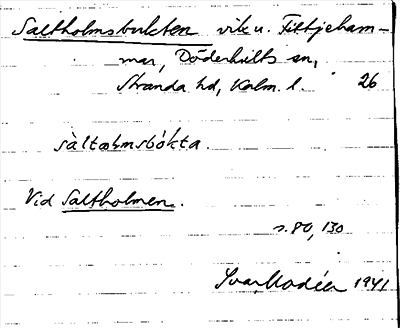 Saltholmsbukten vik u. Fittjeham-
mar, Döderhults sn,
Stranda hd, Kalm. l. 26
sàltœłmsbókta.
Vid Saltholmen.
s. 80, 130
Ivar Modéer 1941